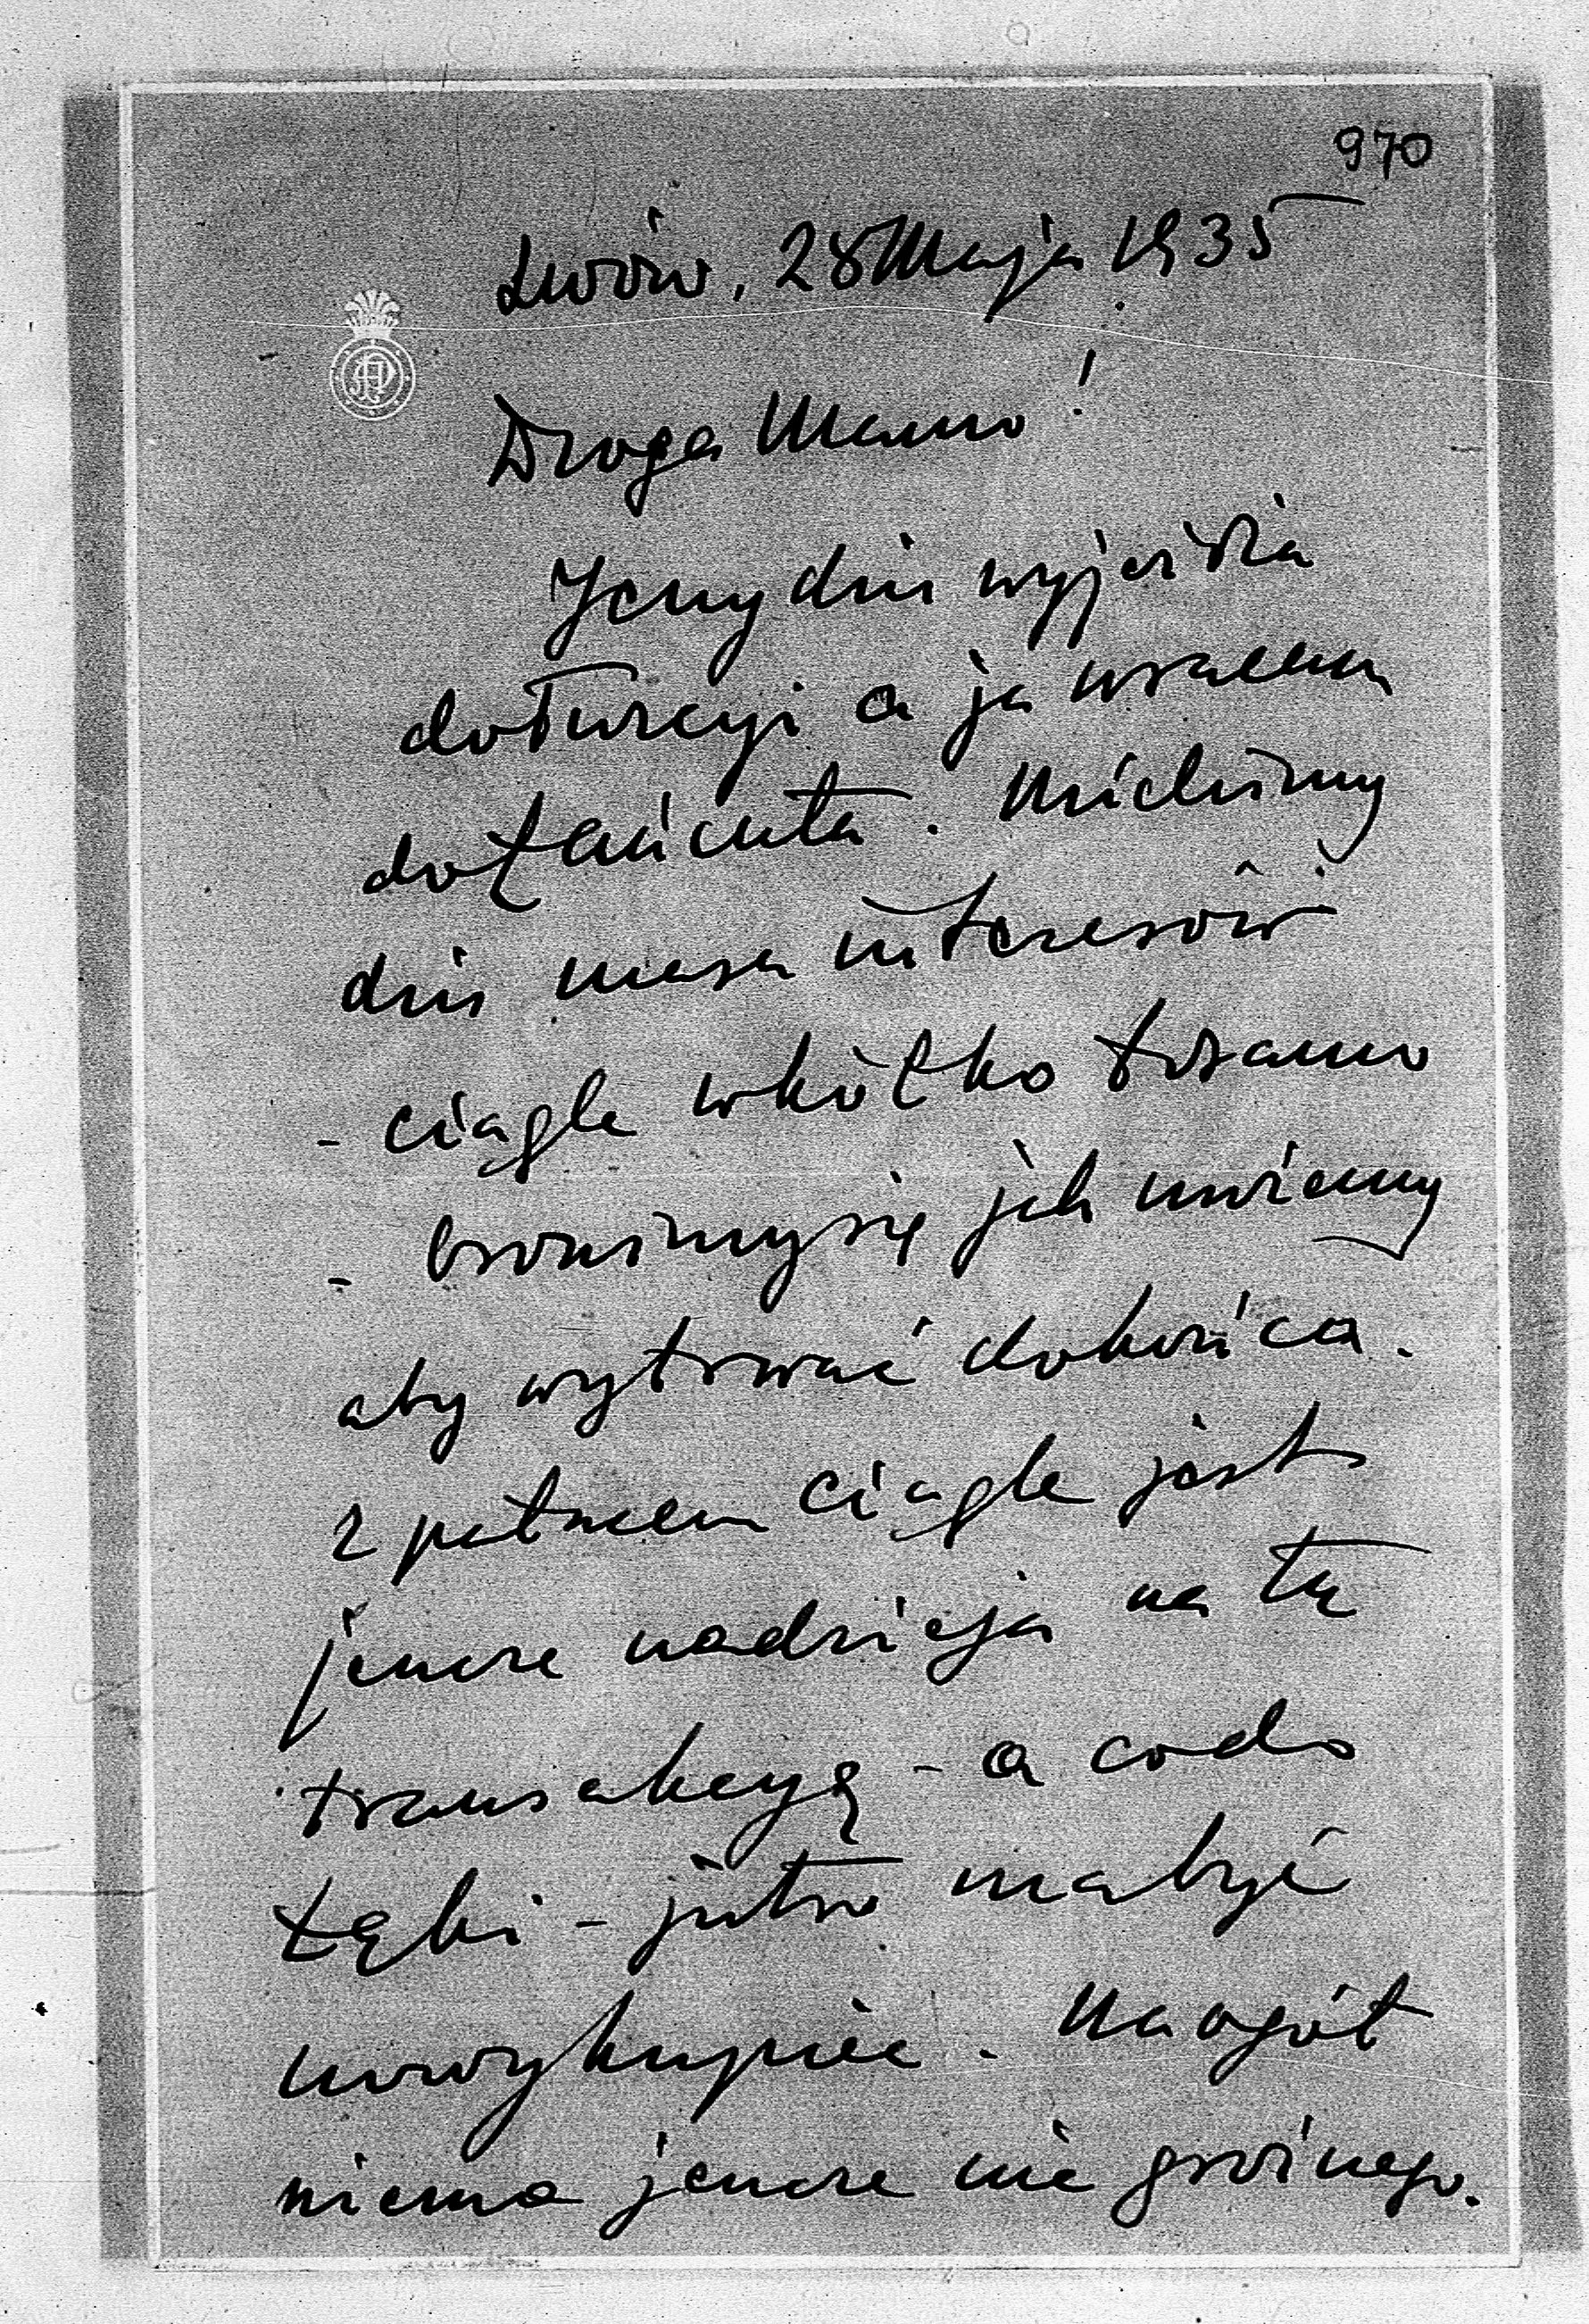 970
Lwów, 28 Maja 1935
Droga Mamo!
Jerzy dziś wyjeżdża
do Turcyi a ja wracam
do Łańcuta. Mieliśmy
dziś masa interesów
- ciągle wkółko tosamo
- bronimy się jak możemy
aby wytrwać dokońca.
Z ciągle jest
jeszcze nadzieja na tę
transakcyę - a codo
Łąki - jutro ma być
nowy kupiec. Naogół
niema jeszcze nic groźnego.